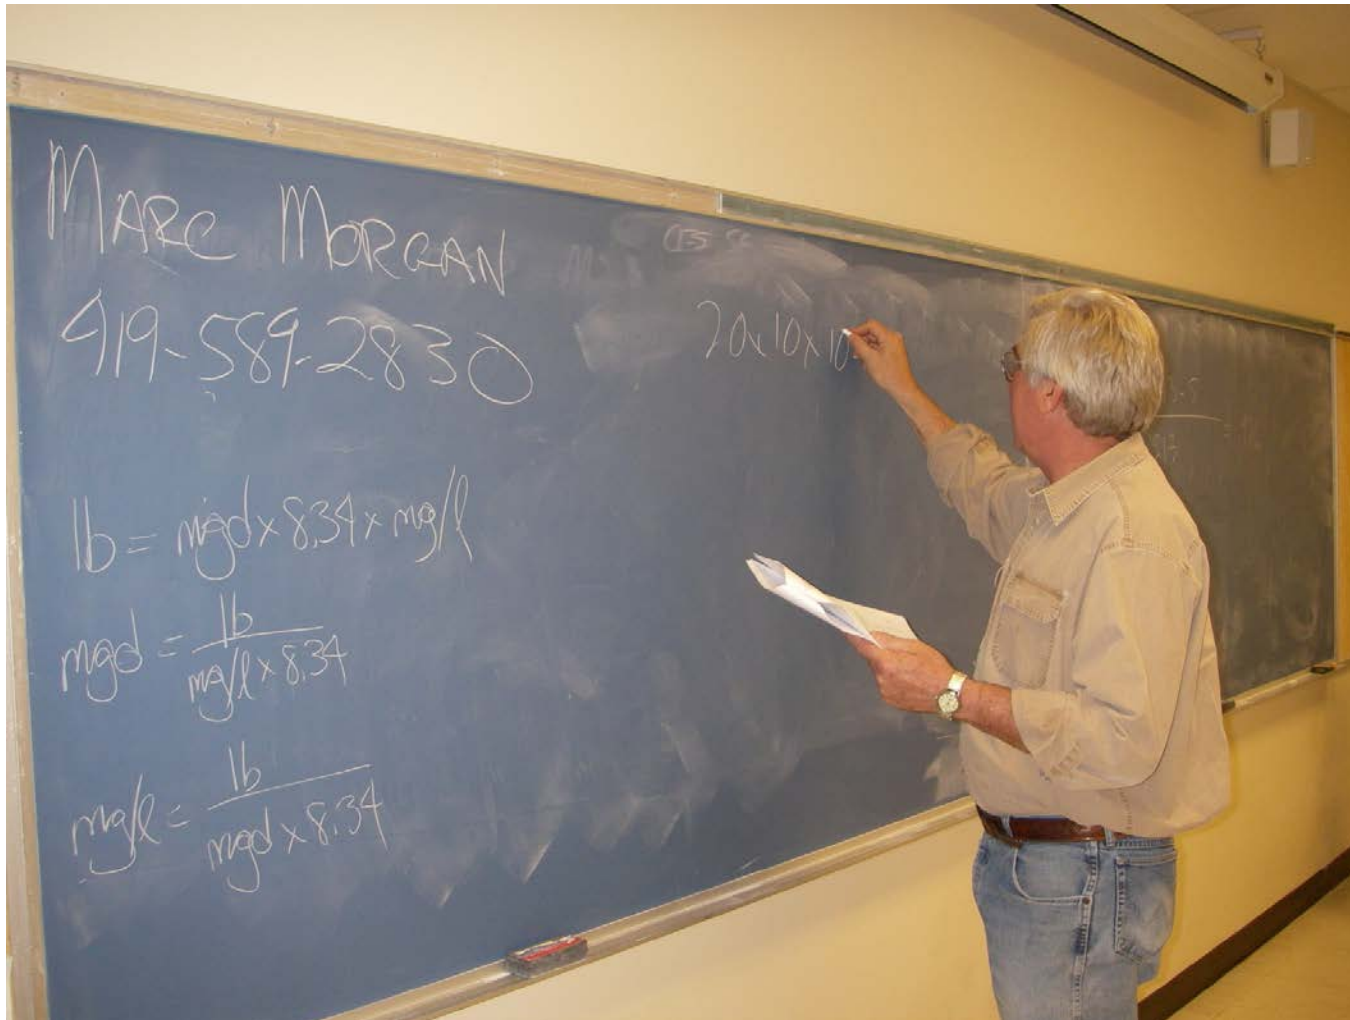 MARC MORGAN
419-589-2830
20x10x10
lb = mgd x 8.34 x mg/l
mgd = lb / mg/l x 8.34
mg/l = lb / mgd x 8.34